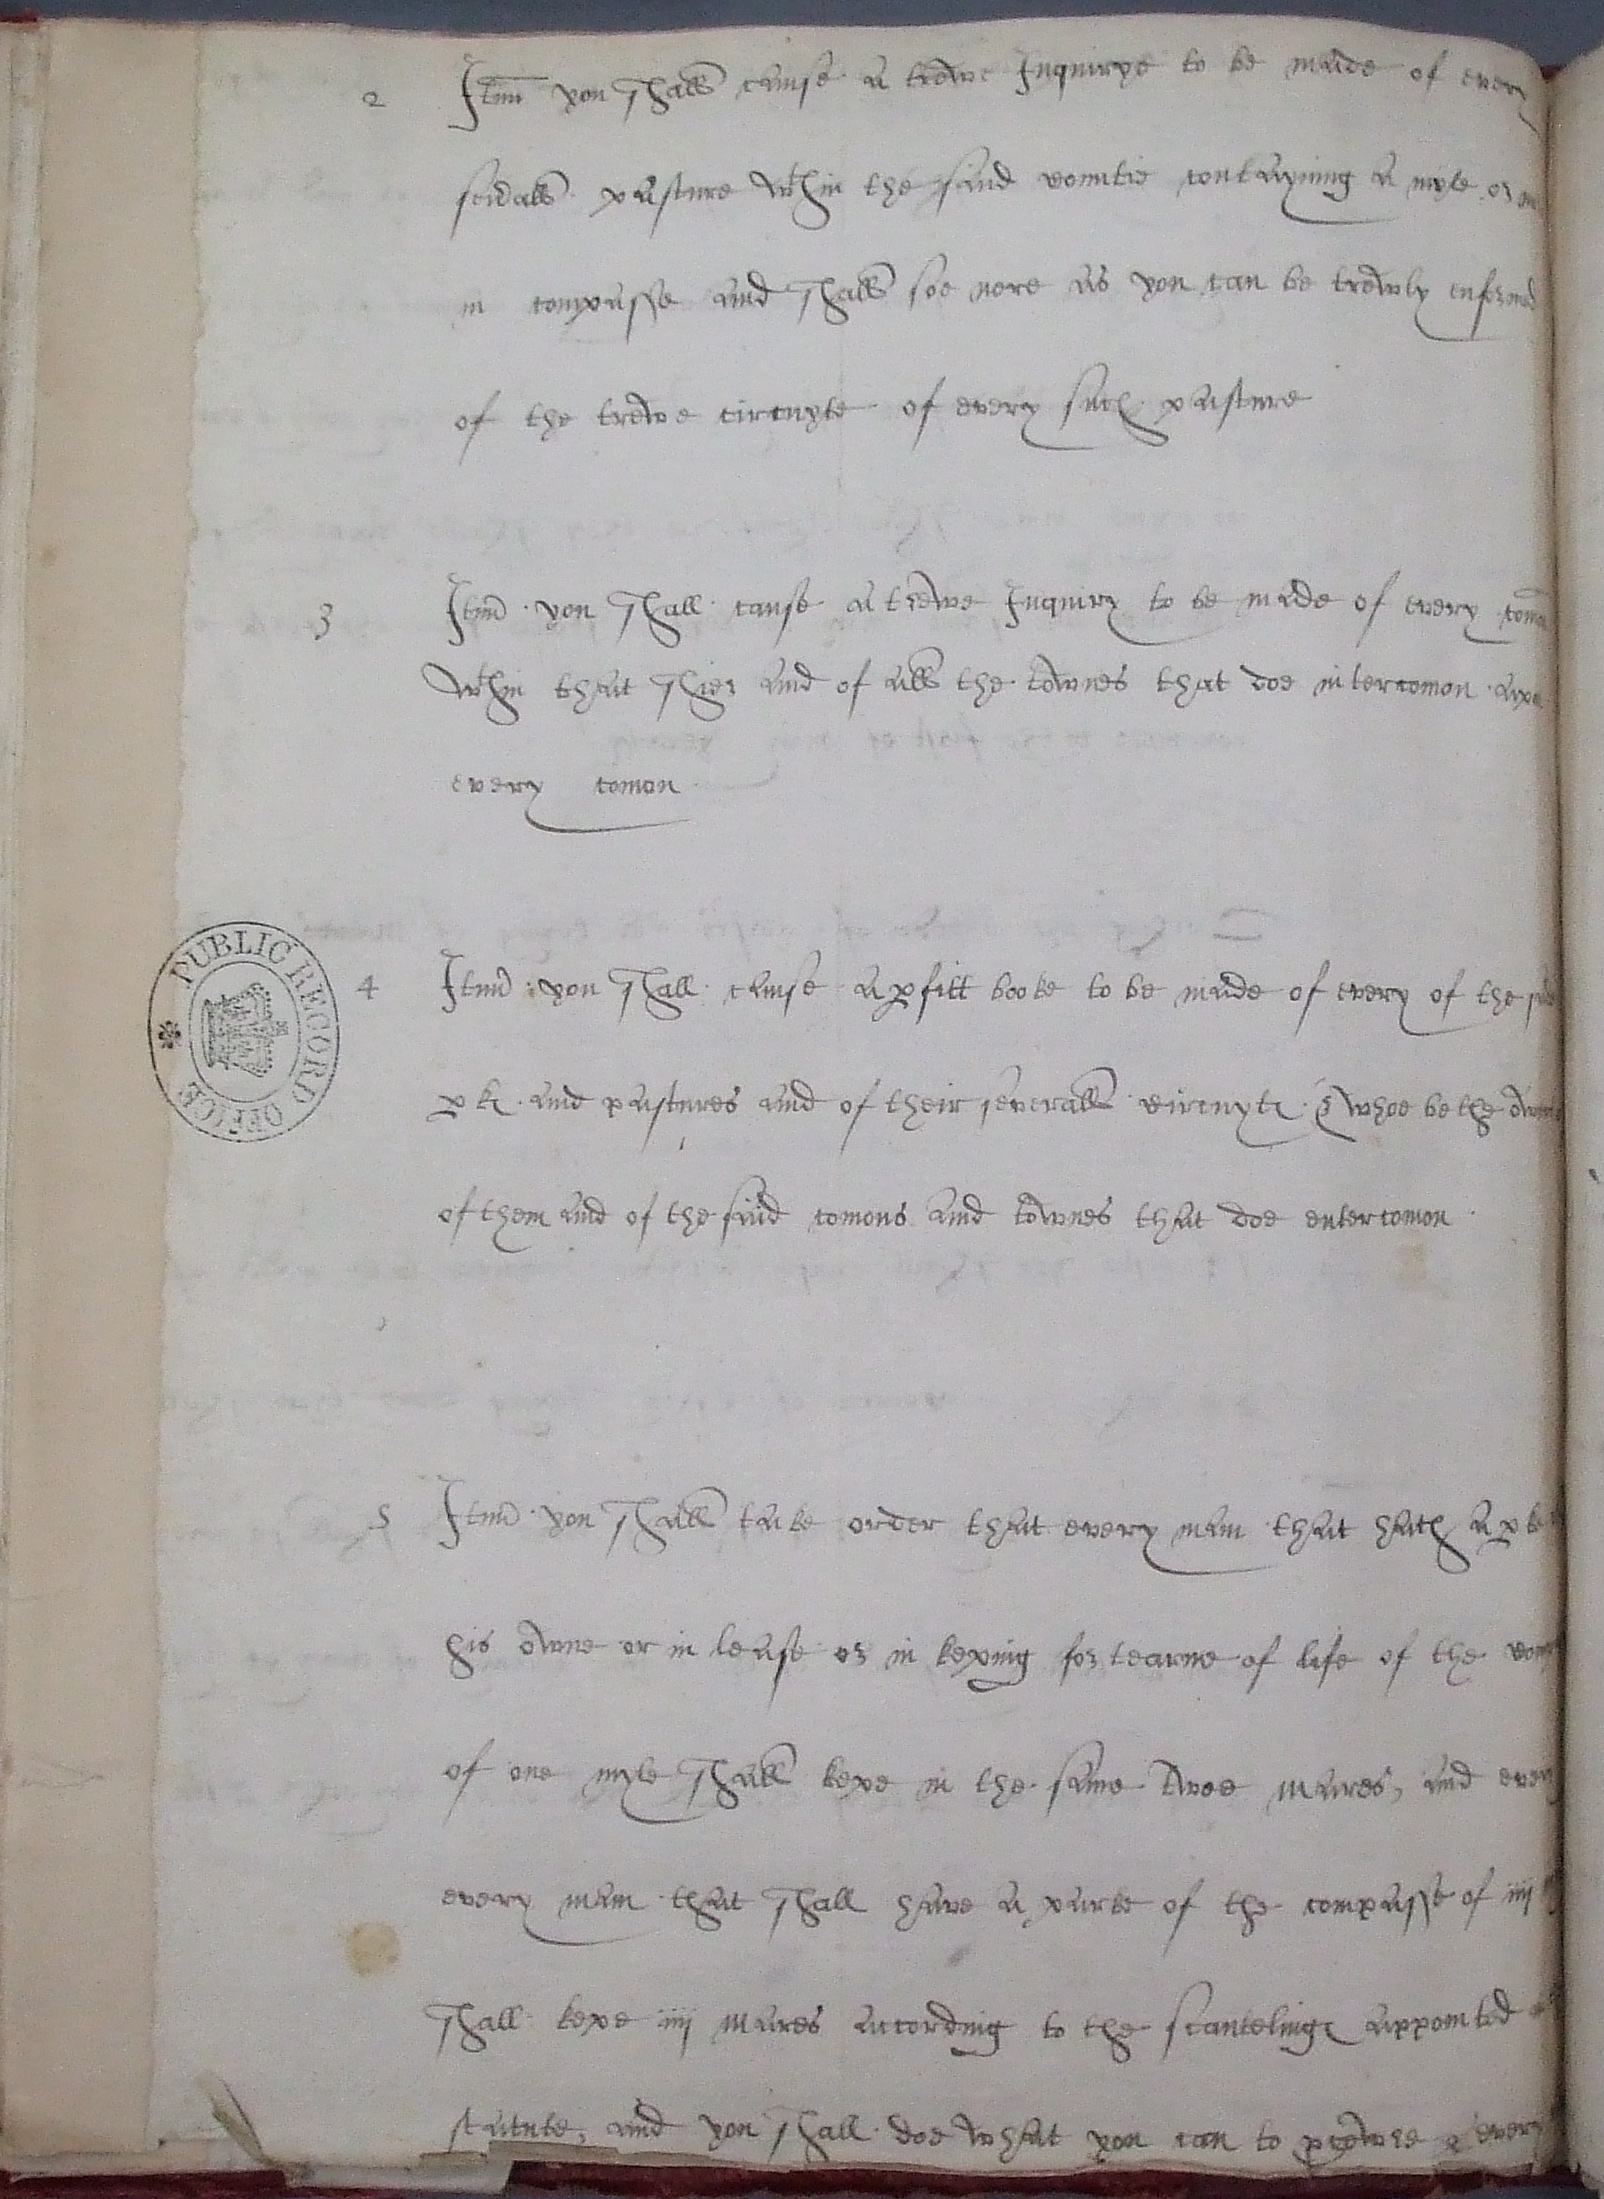 2 Itm̄ you shall cause a trewe Inquirye to be made of every
sevall pasture wthin the said countie contayning a myle or
in compasse and shall soe nere as you can be trewly enformed
of the trewe circuyte of every such pasture
3 Itm̄ you shall cause a trewe Inquiry to be made of every comon
wthin that shier and of all the townes that doe intercomon
every comon
4 Itm̄ you shall cause a pfitt booke to be made of every of the
pks and pastures and of their severall circuyts & whoe be the
of them and of the said comons and townes that doe entercomon
PUBLIC RECORD OFFICE
5 Itm̄ you shall take order that every man that hath a pke
his owne or in lease or in keping for tearme of life of the
of one myle shall kepe in the same twoe mares, and every
every man that shall have a parke of the compasse of iiij
shall kepe iiij mares according to the scantelings appointed
statute, and you shall doe what you can to every